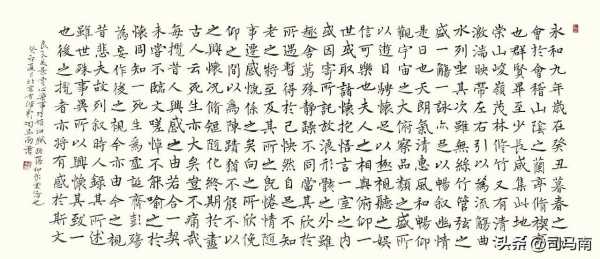 永和九年歲在癸丑暮春之初
會於會稽山陰之蘭亭脩禊事
也群賢畢至少長咸集此地有
崇山峻嶺茂林脩竹又有清流
激湍映帶左右引以為流觴曲
水列坐其次雖無絲竹管弦之
盛一觴一詠亦足以暢敘幽情
是日也天朗氣清惠風和暢仰
觀宇宙之大俯察品類之盛所
以遊目騁懷足以極視聽之娛
信可樂也夫人之相與俯仰一
世或取諸懷抱悟言一室之內
或因寄所託放浪形骸之外雖
趣舍萬殊靜躁不同當其欣於
所遇暫得於己怏然自足不知
老之將至及其所之既惓情隨
事遷感慨係之矣向之所欣俛
仰之間以為陳跡猶不能不以
之興懷況脩短隨化終期於盡
古人云死生亦大矣豈不痛哉
每攬昔人興感之由若合一契
未嘗不臨文嗟悼不能喻之於
懷固知一死生為虛誕齊彭殤
為妄作後之視今亦由今之視
昔悲夫故列敘時人錄其所述
雖世殊事異所以興懷其致一
也後之攬者亦將有感於斯文
头条 @司马南